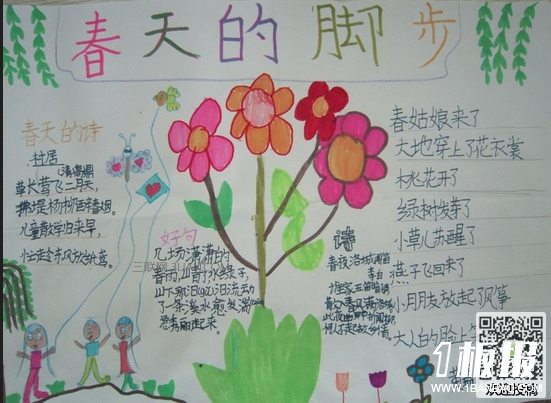 春天的脚步
春天的诗
村居
清高鼎
草长莺飞二月天，
拂堤杨柳醉春烟。
儿童散学归来早，
忙趁东风放纸鸢。
好句
几场淅沥沥的
春雨，山青了水绿了，
山下
了一条淡水
秀丽起来。
诗
春夜洛城闻笛
李白
谁家玉笛暗
散入春风满洛城
此夜曲中闻折柳
何人
春姑娘来了
大地穿上了花衣裳
桃花开了
绿树发芽了
小草儿苏醒了
燕子飞回来了
小朋友放起了风筝
大人的脸上
板报
WWW.1BANBAO.COM
欢迎投稿